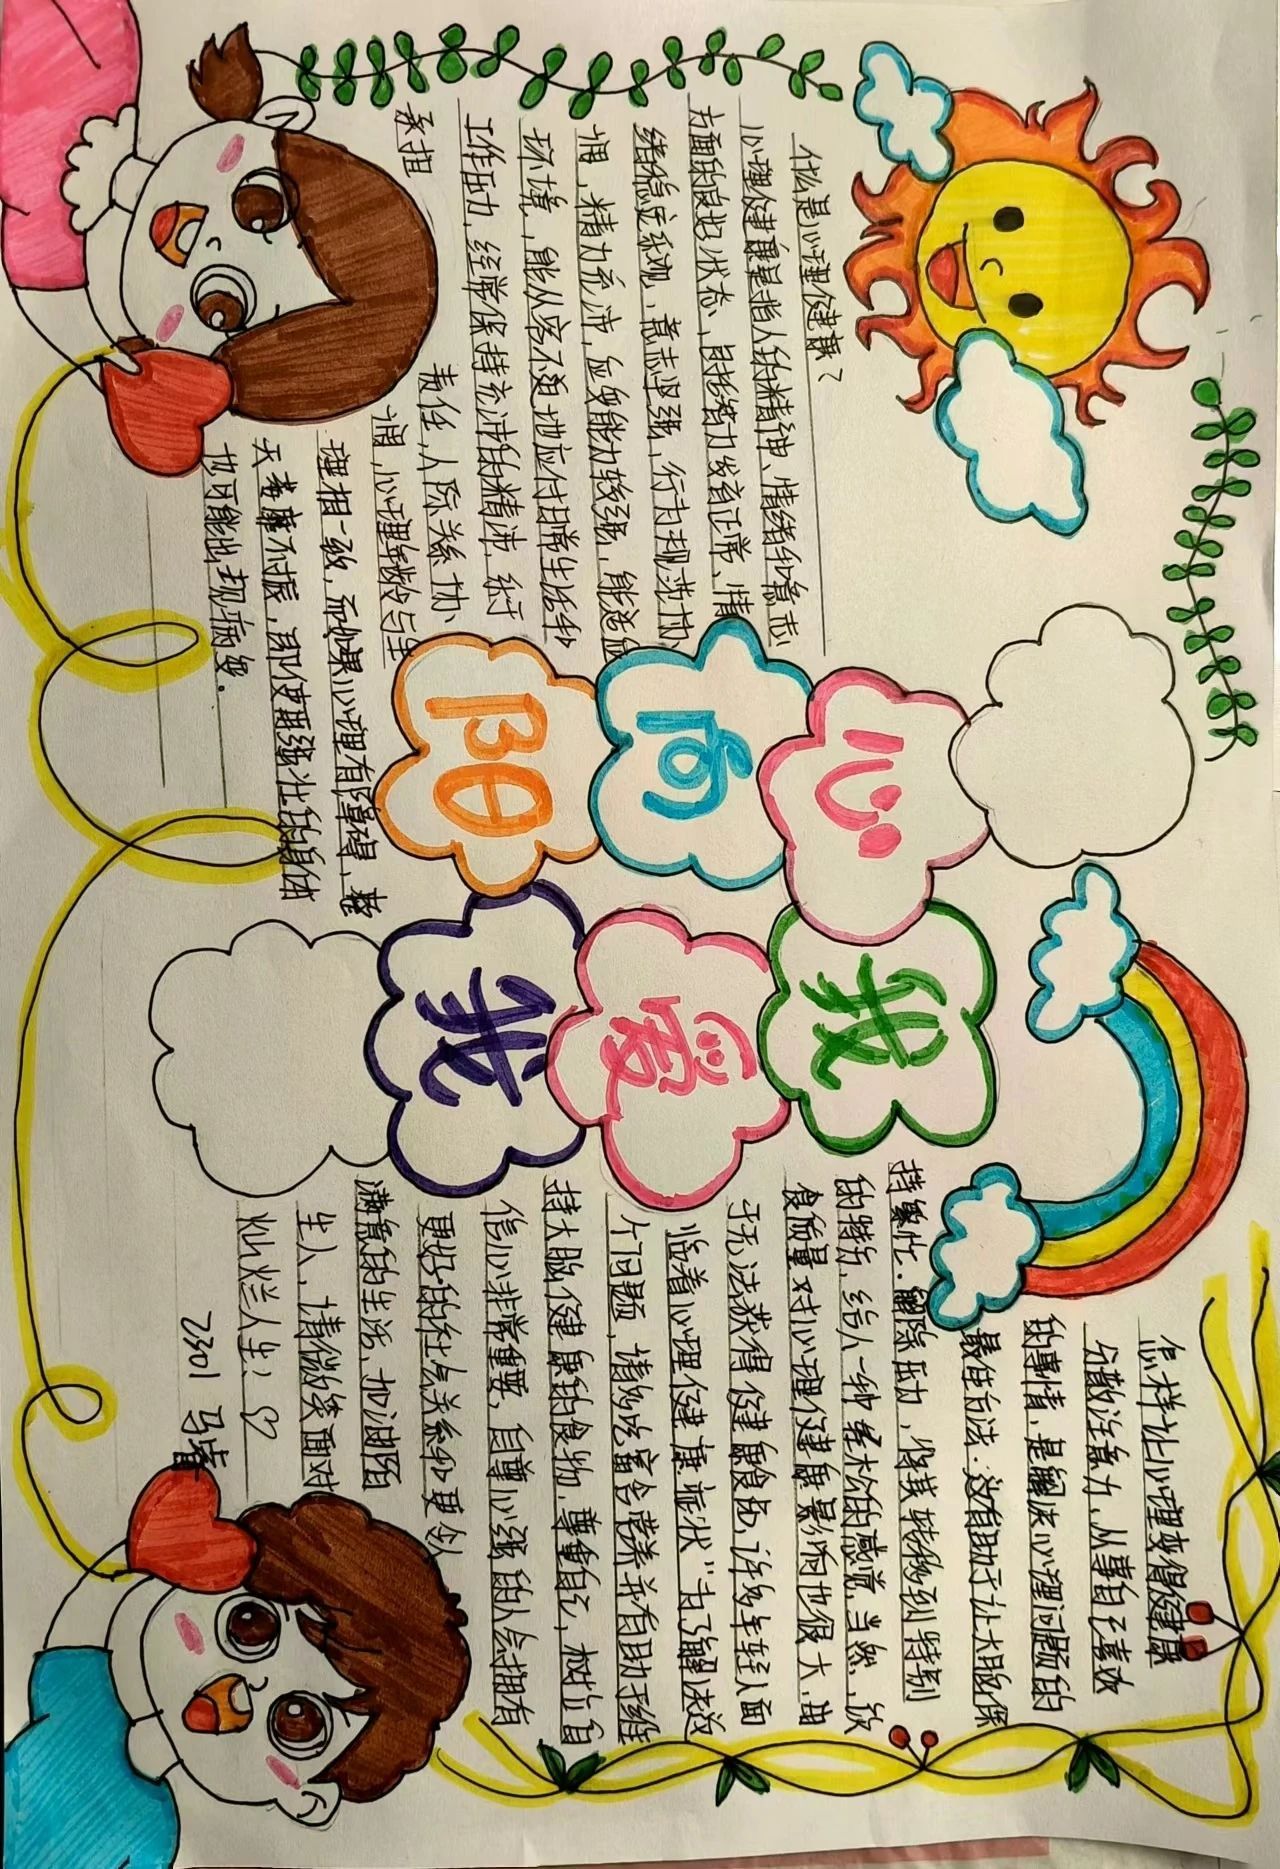 什么是心理健康？
心理健康是指人的精神、情绪和意志
方面的良好状态，包括智力发育正常、情
绪稳定乐观、意志坚强，行为规范协
调，精力充沛，应变能力较强，能适应
环境，能从容不迫地应付日常生活和
工作压力，经常保持充沛的精沛，乐于
承担
责任，人际关系协
调，心理年龄与生
理相一致，而如果心理有障碍，整
天萎靡不振，即使再强壮的身体
也可能出现病变.
心
向
阳
我
爱
我
怎样让心理变得健康
分散注意力，从事自己喜欢
的事情，是解决心理问题的
最佳方法：这有助于让大脑保
持繁忙.解除压力，使其转移到特别
的特方，给人一种轻松的感觉.当然，饮
食质量对心理健康影响也很大，由
于无法获得健康食品，许多年轻人面
临着心理健康症状"为了解决这
个问题，请多吃富含营养并有助于维
持大脑健康的食物，尊重自己，树立自
信心非常重要，自尊心强的人会拥有
更好的社交关系和更令人
满意的生活，加油陌
生人，请微笑面对
灿烂人生！
2301 马